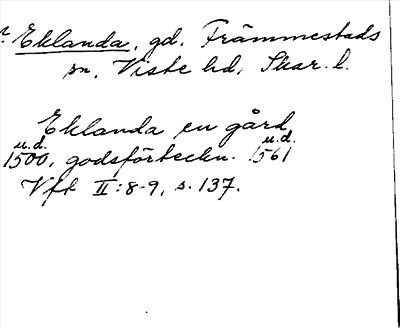 Eklanda, gd, Främmestads
sn, Viste hd, Skar. l.
Eklanda en gård
u.d. u.d.
1500, godsförteckn. 1561
Vft II:8-9, s. 137.